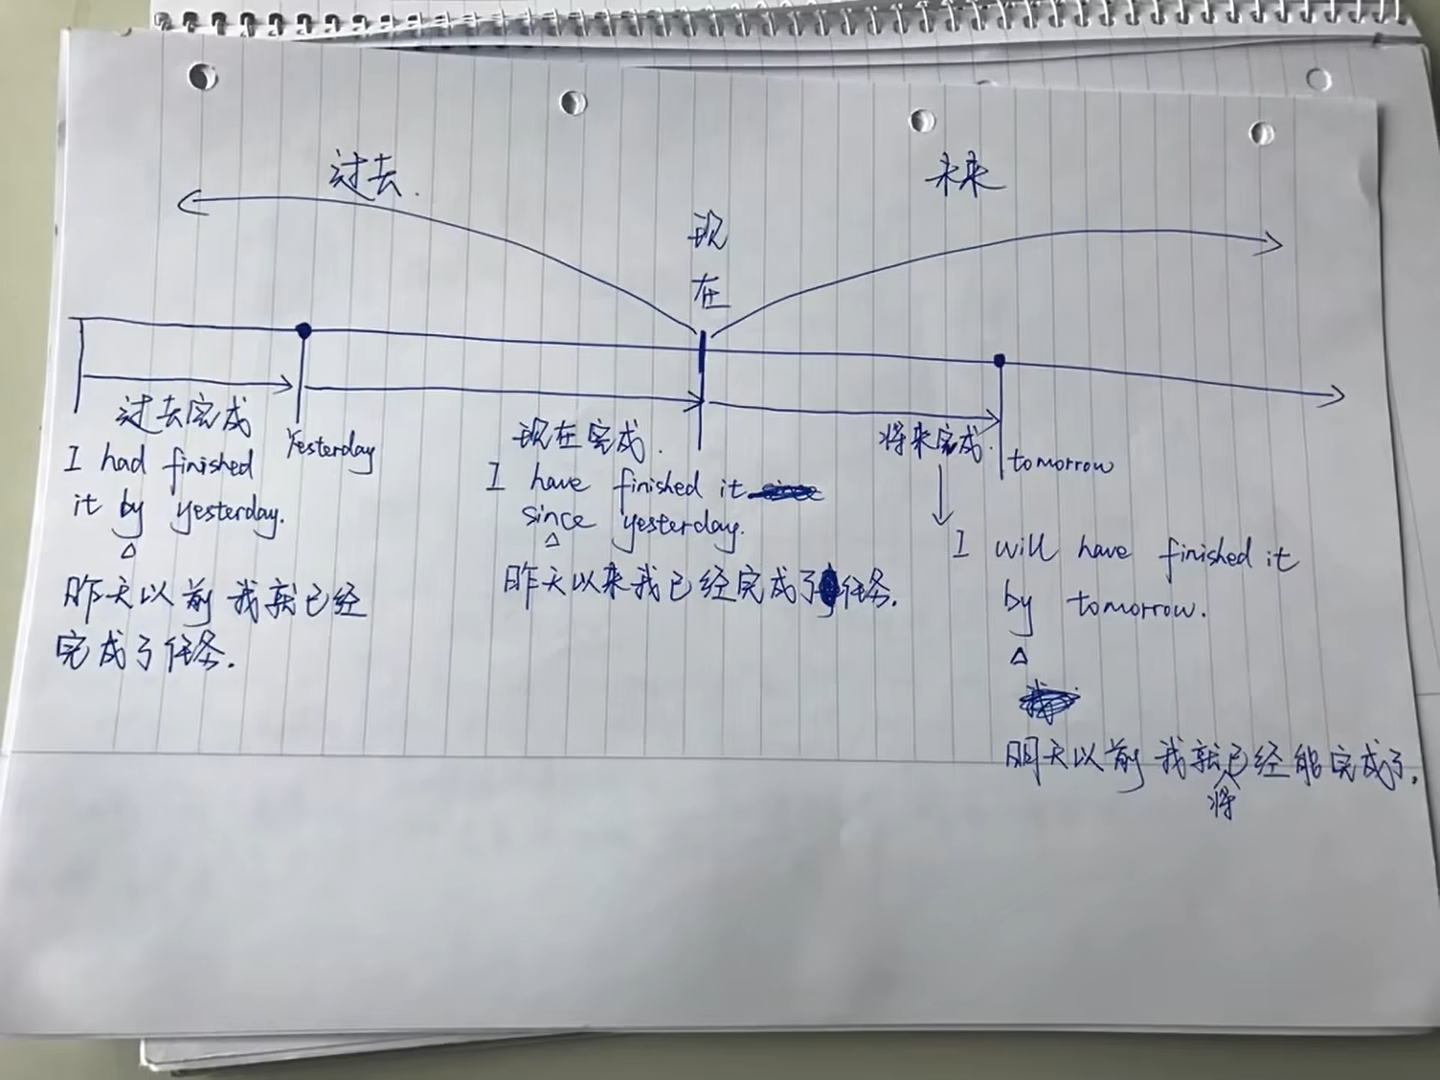 过去.
未来
现
在
过去完成
Yesterday
I had finished
it by yesterday.
昨天以前 我就已经
完成了任务.
现在完成.
I have finished it
since yesterday.
昨天以来我已经完成了任务.
将来完成.
tomorrow
I will have finished it
by tomorrow.
明天以前 我就已经能完成了.
将